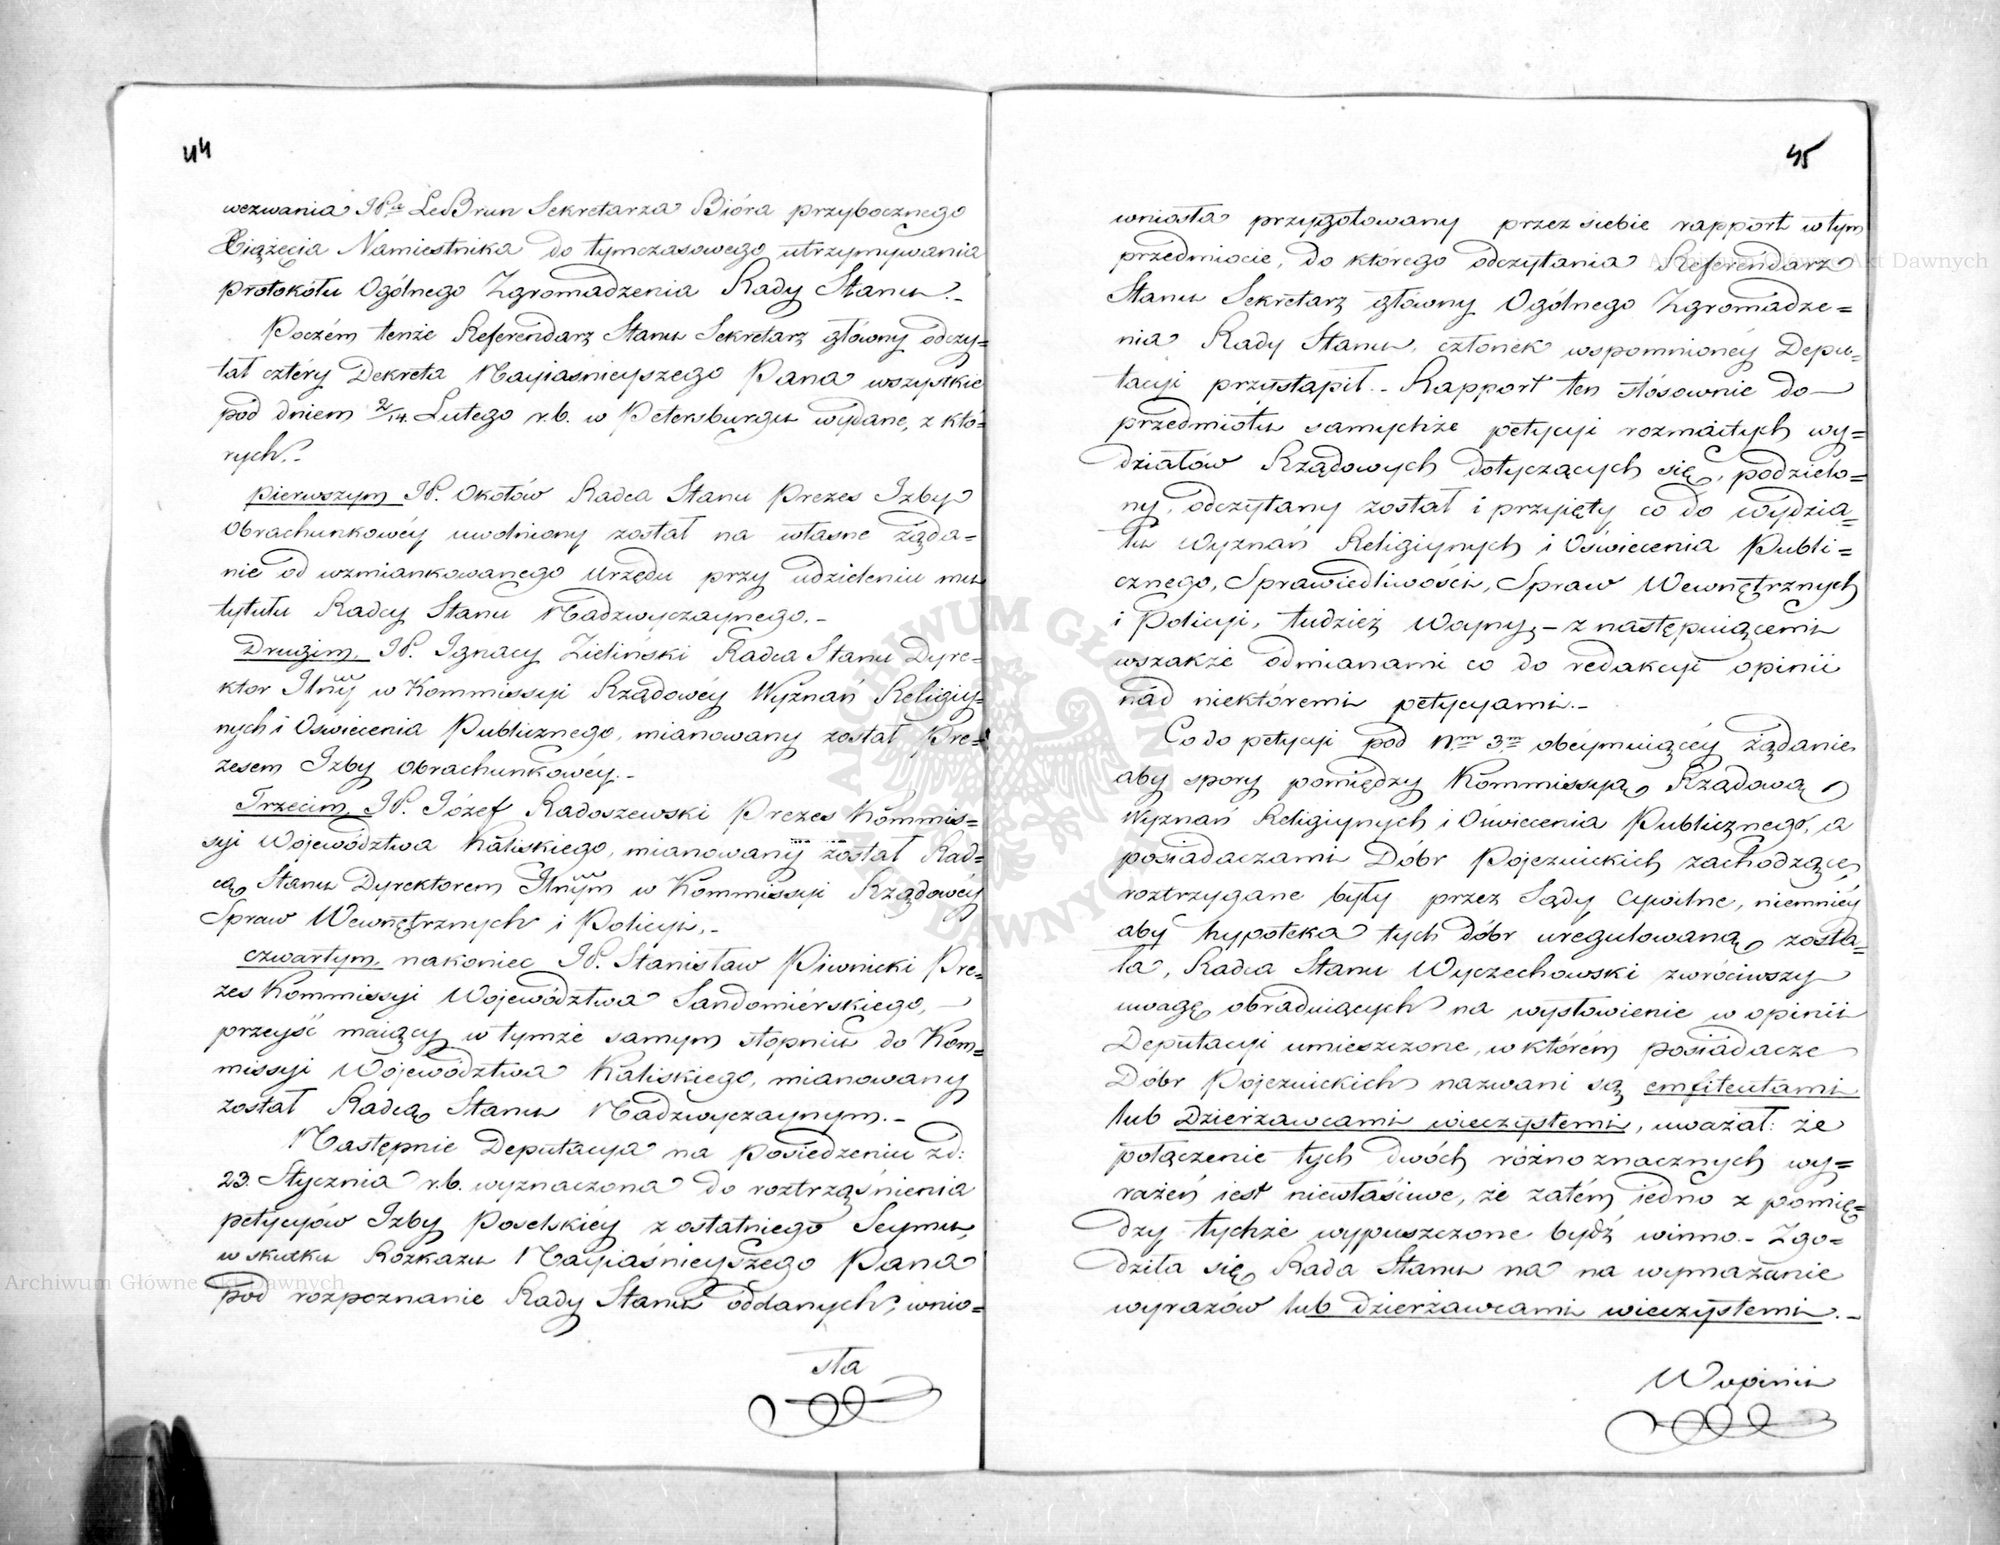 44
wezwania JPa LeBrun Sekretarza Bióra przybocznego
Xiążęcia Namiestnika do tymczasowego utrzymywania
protokółu Ogólnego Zgromadzenia Rady Stanu.-
Poczém tenże Referendarz Stanu Sekretarz główny odczy=
tał cztéry Dekreta Nayiaśnieyszego Pana wszystkie
pod dniem 2/14. Lutego r.b. w Petersburgu wydane, z któ=
rych.-
pierwszym JP. Okołów Radca Stanu Prezes Izby
Obrachunkowéy uwolniony został na własne żąda=
nie od wzmiankowanego urzędu przy udzieleniu mu
tytułu Radcy Stanu Nadzwyczaynego.-
Drugim, JP. Ignacy Zieliński Radca Stanu Dyre=
ktor Jlny w Kommissyi Rządowéy Wyznań Religiy=
nych i Oświecenia Publicznego, mianowany został Pre=
zesem Izby Obrachunkowéy.-
Trzecim, JP. Józef Radoszewski Prezes Kommis=
syi Województwa Kaliskiego, mianowany został Rad=
cą Stanu Dyrektorem Jlnym w Kommissyi Rządowéy
Spraw Wewnętrznych i Policyi.-
czwartym, nakoniec JP. Stanisław Piwnicki Pre=
zes Kommissyi Województwa Sandomiérskiego, —
przeyść maiący w tymże samym stopniu do Kom=
missyi Województwa Kaliskiego, mianowany
został Radcą Stanu Nadzwyczaynym.-
Następnie Deputacya na posiedzeniu zd:
23. Stycznia r.b. wyznaczona do roztrząśnienia
petycyów Izby Poselskiéy z ostatniego Seymu,
w skutku Rozkazu Nayiaśnieyszego Pana
pod rozpoznanie Rady Stanu oddanych, wnio=
sła
45
wniosła przygotowany przez siebie rapport w tym
przedmiocie, do którego odczytania Referendarz
Stanu Sekretarz główny Ogólnego Zgromadze=
nia Rady Stanu, członek wspomnionéy Depu=
tacyi przystąpił.- Rapport ten stósownie do—
przedmiotu samychże petycyi rozmaitych wy=
działów Rządowych dotyczących się, podzielo=
ny, odczytany został i przyięty co do wydzia=
łu Wyznań Religiynych i Oświecenia Publi=
cznego, Sprawiedliwości, Spraw Wewnętrznych
i Policyi, tudzież Woyny,- z następuiącemi
wszakże odmianami co do redakcyi opinii
nad niektóremi petycyami.-
Co do petycyi pod Nrm 3m obeymuiącéy żądanie
aby spory pomiędzy Kommissyą Rządową
Wyznań Religiynych i Oświecenia Publicznego, a
posiadaczami Dóbr Pojezuickich zachodzące,
roztrzygane były przez Sądy cywilne, niemniéy
aby hypoteka tych dóbr uregulowaną zosta=
ła, Radca Stanu Wyczechowski zwróciwszy
uwagę obraduiących na wysłowienie w opinii
Deputacyi umieszczone, w którém posiadacze
Dóbr Pojezuickich nazwani są emfiteutami
lub Dzierżawcami wieczystemi, uważał: że
połączenie tych dwóch różnoznacznych wy=
rażeń iest niewłaściwe, że zatém iedno z pomię=
dzy tychże wypuszczone bydź winno.- Zgo=
dziła się Rada Stanu na na wymazanie
wyrazów lub dzierżawcami wieczystemi.-
W opinii
Archiwum Główne Akt Dawnych
Archiwum Główne Akt Dawnych
ARCHIWUM GŁÓWNE AKT DAWNYCH